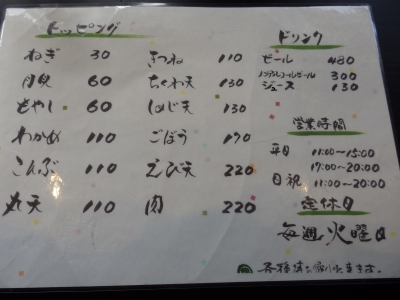 トッピング
ねぎ 30
月見 60
もやし 60
わかめ 110
こんぶ 110
丸天 110
きつね 110
ちくわ天 130
しめじ天 130
ごぼう 190
えび天 220
肉 220
ドリンク
ビール 480
ノンアルコールビール 300
ジュース 130
営業時間
平日 11:00～15:00
17:00～20:00
日祝 11:00～20:00
定休日
毎週火曜日
各種